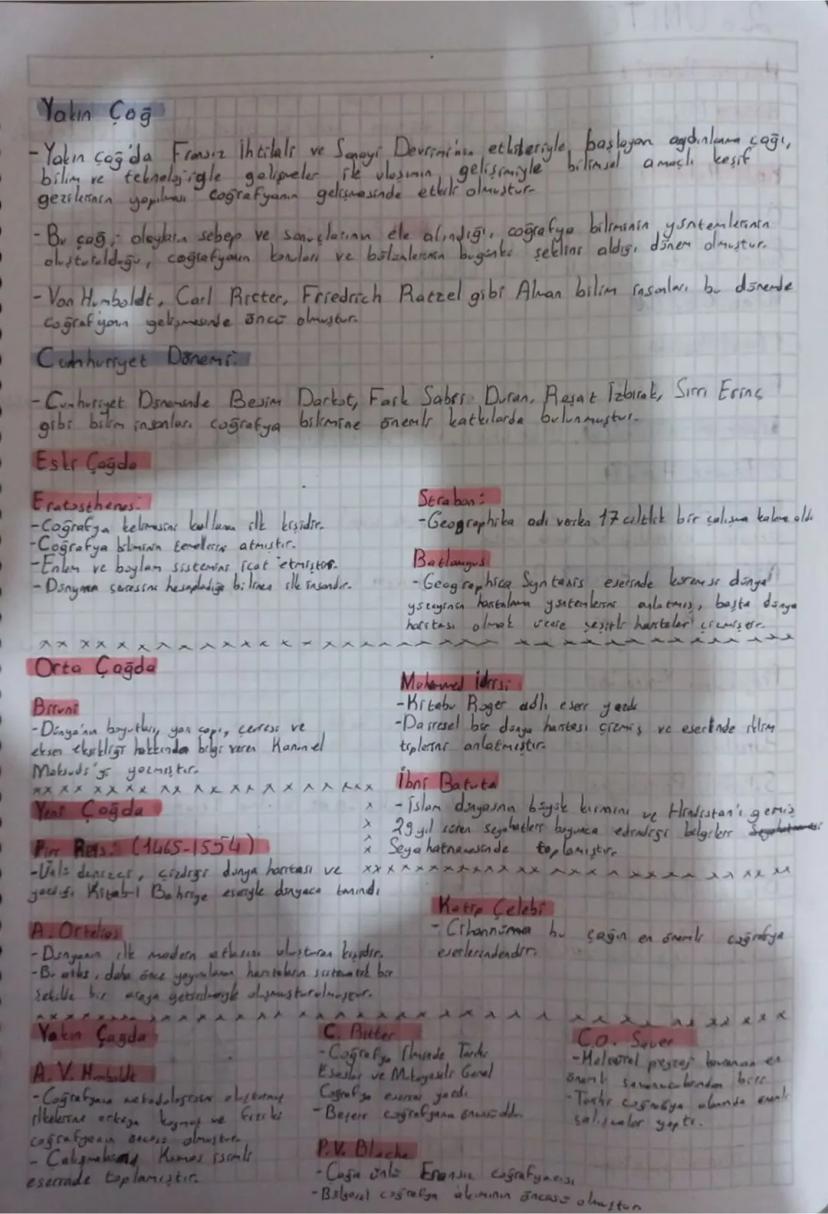 Yakın Çağ
- Yakın çağ'da Fransız İhtilali ve Sanayi Devrimi'nin etkileriyle başlayan aydınlanma çağı,
bilim ve teknolojiyle gelişmeler ile ulaşımın gelişimiyle bilimsel amaçlı keşif
gezilerinin yapılması coğrafyanın gelişmesinde etkili olmuştur.
- Bu çağ, olayların sebep ve sonuçlarının ele alındığı, coğrafya biliminin yöntemlerinin
oluşturulduğu, coğrafyanın konuları ve bölümlerinin bugünkü şeklini aldığı dönem olmuştur.
- Von Humboldt, Carl Ritter, Friedrich Ratzel gibi Alman bilim insanları bu dönemde
coğrafyanın gelişmesinde öncü olmuştur.
Cumhuriyet Dönemi:
- Cumhuriyet Döneminde Besim Darkot, Faik Sabri Duran, Reşat İzbırak, Sırrı Erinç
gibi bilim insanları coğrafya bilimine önemli katkılarda bulunmuştur.
Eski Çağda
Eratosthenes:
- Coğrafya kelimesini kullanan ilk kişidir.
- Coğrafya biliminin temellerini atmıştır.
- Enlem ve boylam sistemini icat etmiştir.
- Dünyanın çevresini hesapladığı bilinen ilk insandır.
Strabon:
- Geographika adı verilen 17 ciltlik bir çalışma kaleme aldı
Batlamyus
- Geographica Syntaxis eserinde küremsi dünya
yüzeyinin haritalama yöntemlerini anlatmış, başta dünya
haritası olmak üzere çeşitli haritalar çizmiştir.
Orta Çağda
Biruni
- Dünya'nın boyutları, yarı çapı, çevresi ve
eksen eksikliği hakkında bilgi veren Kanun el
Mahsudi'yi yazmıştır.
Muhammed İdrisi
- Kitabu Roger adlı eseri yazdı
- Dairesel bir dünya haritası çizmiş ve eserinde iklim
tiplerini anlatmıştır.
İbni Batuta
- İslam dünyasının büyük kısmını ve Hindistan'ı gezmiş
29 yıl süren seyahatleri boyunca edindiği belgileri
Seyahatnamesinde toplamıştır.
Yeni Çağda
Piri Reis: (1465-1554)
- Ünlü denizci, çizdiği dünya haritası ve
yazdığı Kitab-ı Bahriye eseriyle dünyaca tanındı
Katip Çelebi
- Cihannüma bu çağın en önemli coğrafya
eserlerindendir.
A. Ortelius
- Dünyanın ilk modern atlasını oluşturan kişidir.
- Bu atlas, daha önce yayınlanan haritaların sistematik bir
şekilde bir araya getirilmesiyle oluşturulmuştur.
Yakın Çağda
A. V. Humboldt
- Coğrafyanın metodolojisini oluşturmuş
ilkelerini ortaya koymuş ve fiziki
coğrafyanın öncüsü olmuştur.
- Çalışmalarını Kozmos isimli
eserinde toplamıştır.
C. Ritter
- Coğrafya İlminde Tarihi
Esaslar ve Mukayeseli Genel
Coğrafya eserini yazdı
- Beşeri coğrafyanın öncüsüdür.
P. V. Blache
- Çağın ünlü Fransız coğrafyacısı
- Bölgesel coğrafya akımının öncüsü olmuştur
C.O. Sauer
- Kültürel peyzaj kavramının en
önemli savunucularından biri.
- Tarihi coğrafya alanında önemli
çalışmalar yaptı.